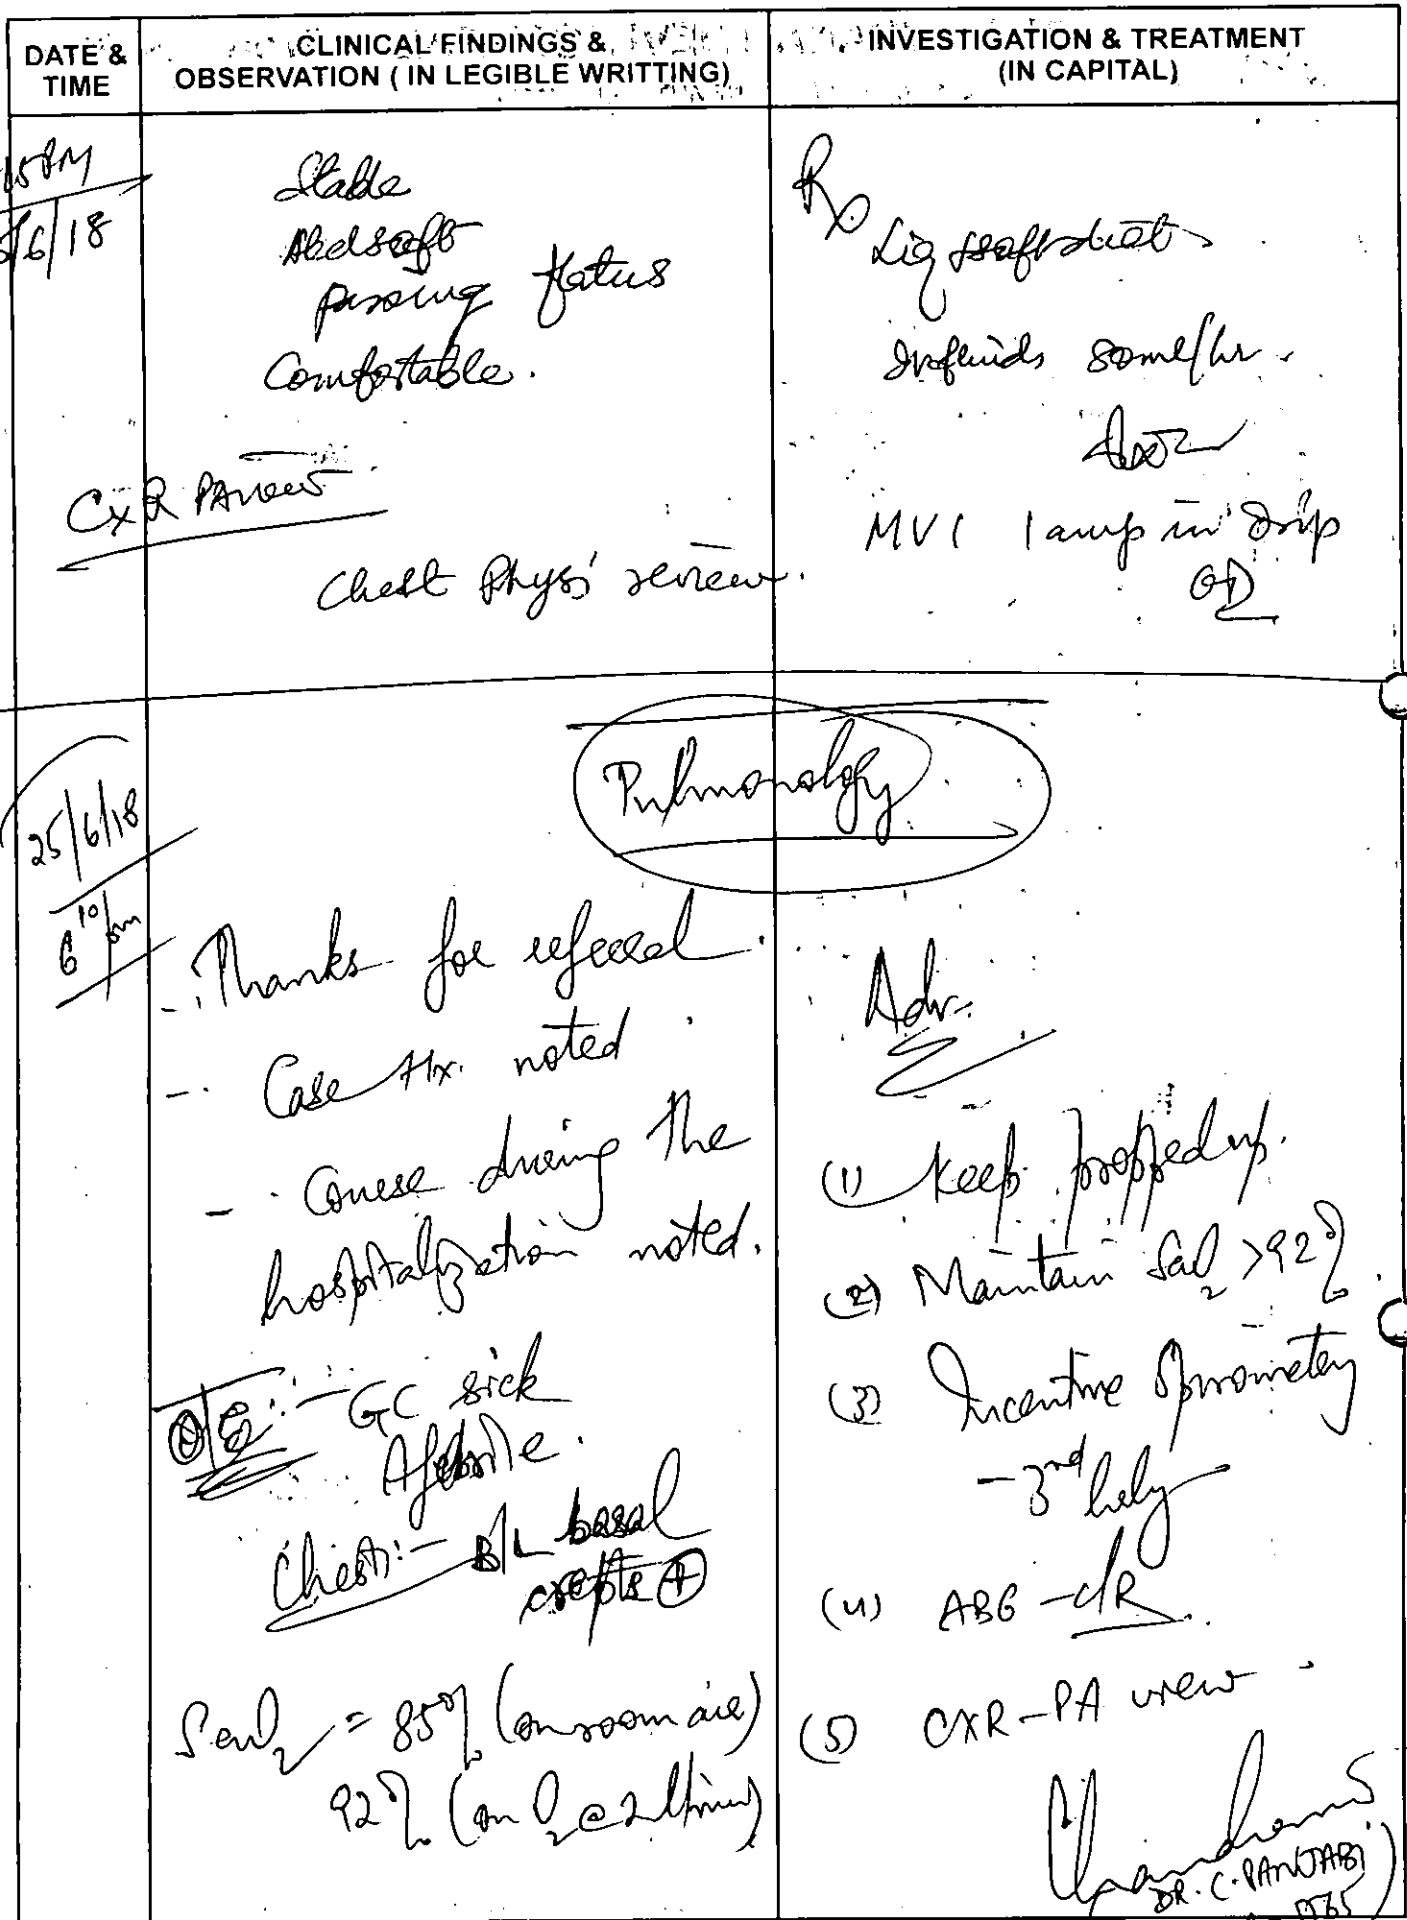 DATE & TIME
CLINICAL FINDINGS & OBSERVATION ( IN LEGIBLE WRITTING)
INVESTIGATION & TREATMENT (IN CAPITAL)
15PM
5/6/18
Stable
Abd soft
passing flatus
Comfortable.
CxR PA view
Chest Physi review.
Rx
Liq soft diet
Iv fluids 50ml/hr.
MVI 1 amp in drip
OD
Pulmonology
25/6/18
6 10/pm
- Thanks for referral
- Case Hx. noted
- Course during the
hospitalization noted.
O/E:- GC sick
Afebrile.
Chest:- B/L basal
crepts +
SaO2 = 85% (on room air)
92% (on O2 @ 2 l/min)
Adv.
(1) Keep propped up.
(2) Maintain SaO2 >92%.
(3) Incentive Spirometry
- 3nd hrly
(4) ABG -
(5) CXR-PA view
DR. C. PANJABI